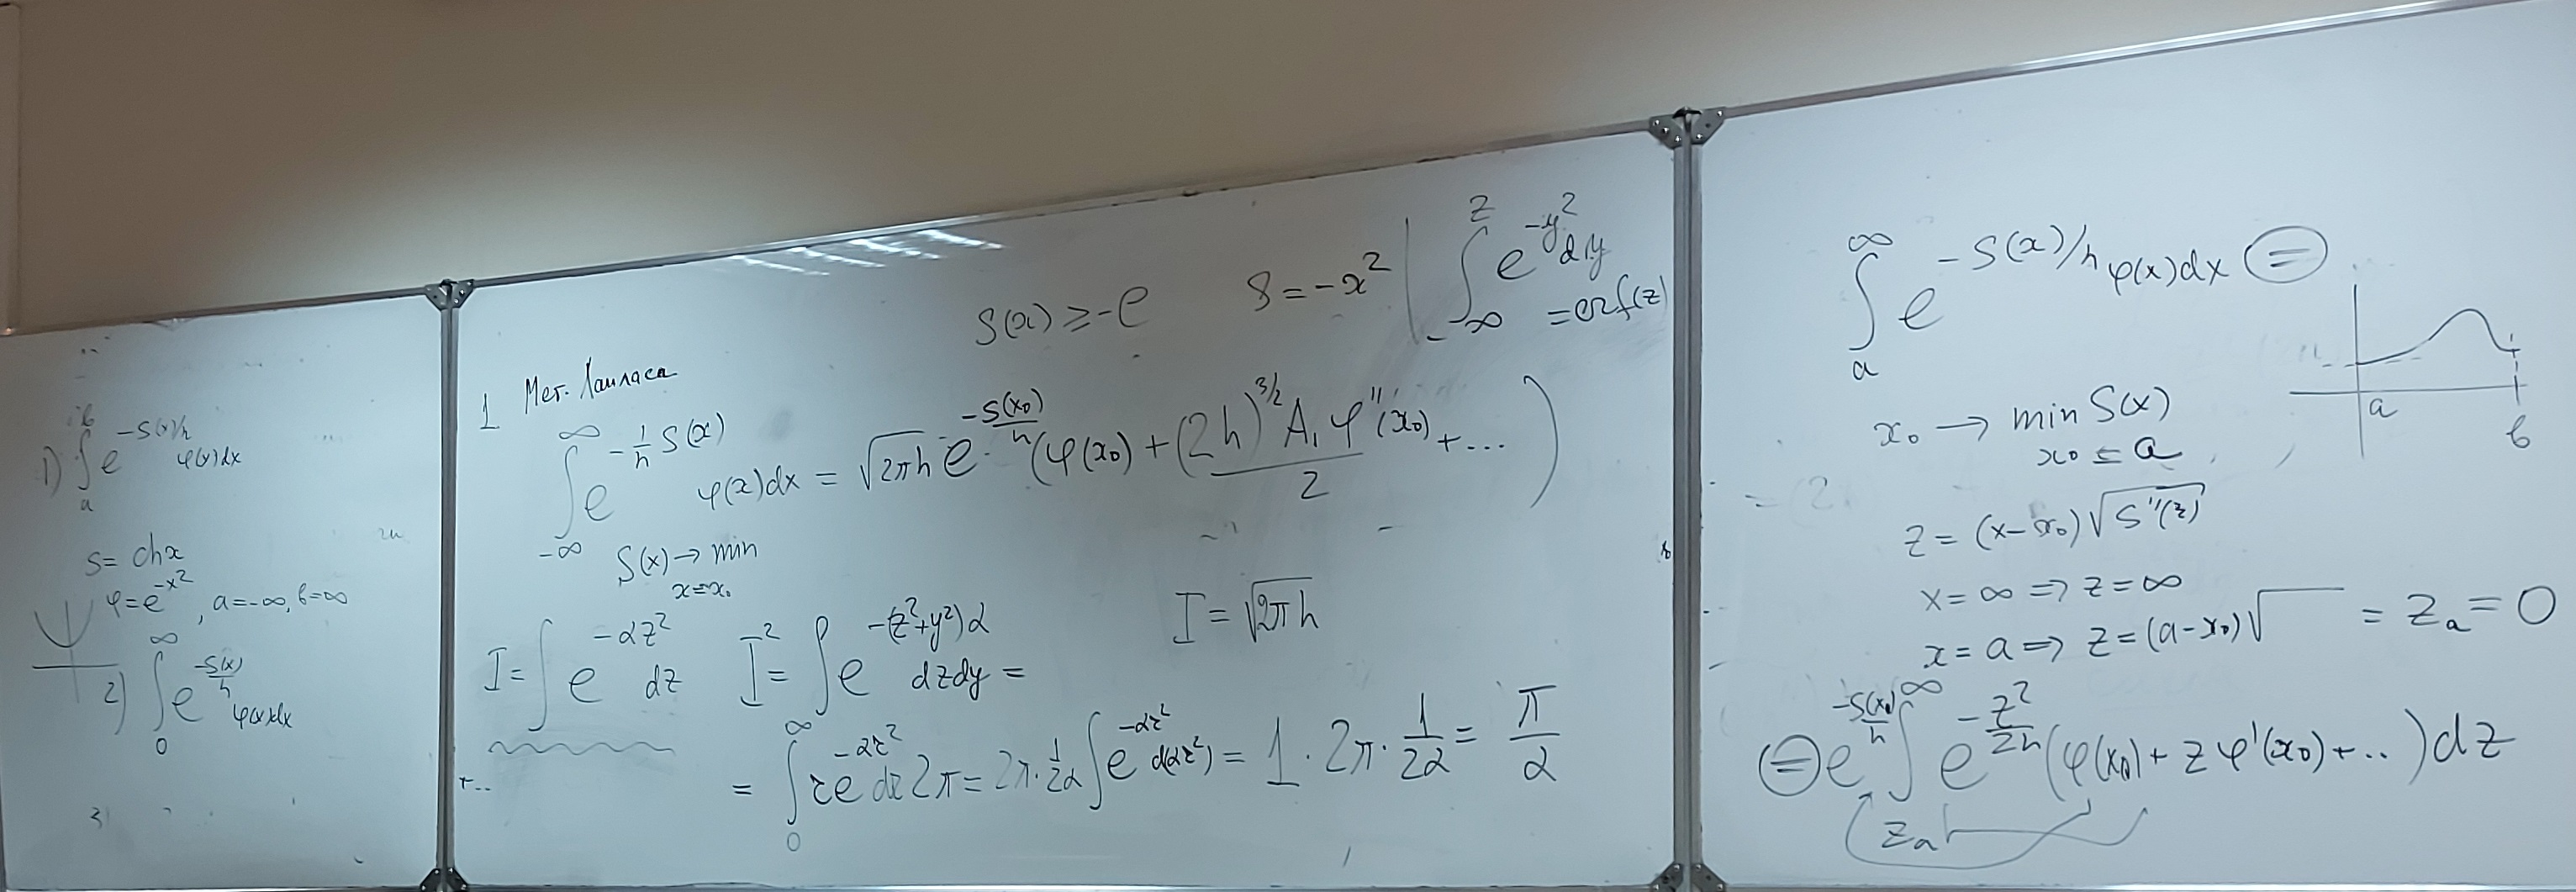 1) ∫_a^b e^{-S(x)/h} φ(x)dx
S = ch x
φ = e^{-x^2}, a = -∞, b = ∞
2) ∫_0^∞ e^{-S(x)/h} φ(x)dx
S(x) ≥ -e
S = -x^2 | ∫_{-∞}^z e^{-y^2} dy = erf(z)
1 Мет. Лапласа
∫_{-∞}^∞ e^{-1/h S(x)} φ(x)dx = √(2πh) e^{-S(x_0)/h} (φ(x_0) + (2h)^{3/2} A_1 φ''(x_0)/2 + ...)
S(x) → min x=x_0
I = ∫ e^{-αz^2} dz I^2 = ∫ e^{-(z^2+y^2)α} dzdy =
I = √(2πh)
= ∫_0^∞ r e^{-αr^2} dr 2π = 2π · 1/2α ∫ e^{-αr^2} d(αr^2) = 1 · 2π · 1/2α = π/α
+...
∫_a^∞ e^{-S(x)/h} φ(x)dx =
a b
x_0 → min S(x)
x_0 = a
z = (x-x_0)√(S''(z))
x = ∞ ⇒ z = ∞
x = a ⇒ z = (a-x_0)√ = z_a = 0
= e^{-S(x_0)/h} ∫_{z_a}^∞ e^{-z^2/2h} (φ(x_0) + zφ'(x_0) + ...) dz